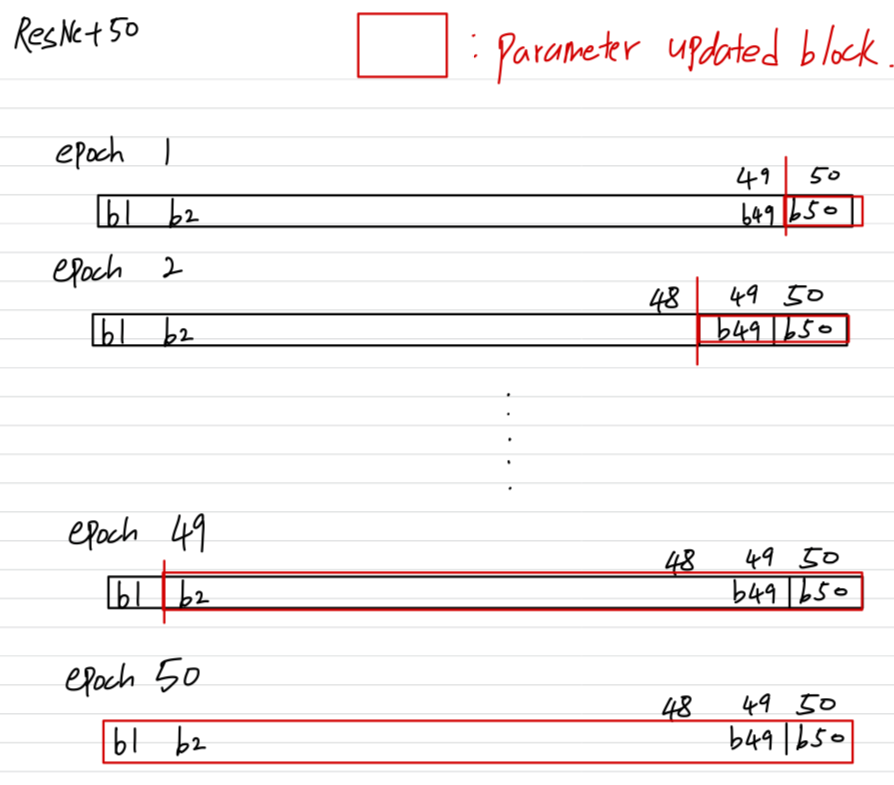 ResNet50
: parameter updated block.
epoch 1
49 50
b1 b2 b49 b50
epoch 2
48 49 50
b1 b2 b49 b50
epoch 49
48 49 50
b1 b2 b49 b50
epoch 50
48 49 50
b1 b2 b49 b50